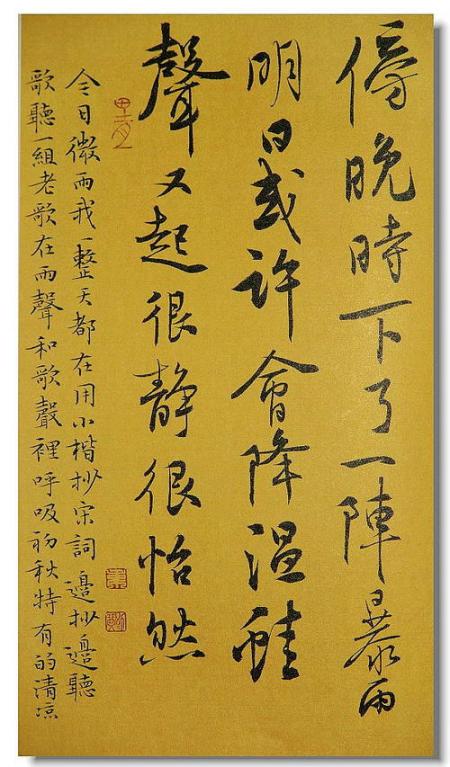 傍晚時下了一陣暴雨
明日或许會降温蛙
聲又起很静很怡然
今日微雨我一整天都在用小楷抄宋詞邊抄邉聽
歌聽一組老歌在雨聲和歌聲裡呼吸初秋特有的清凉